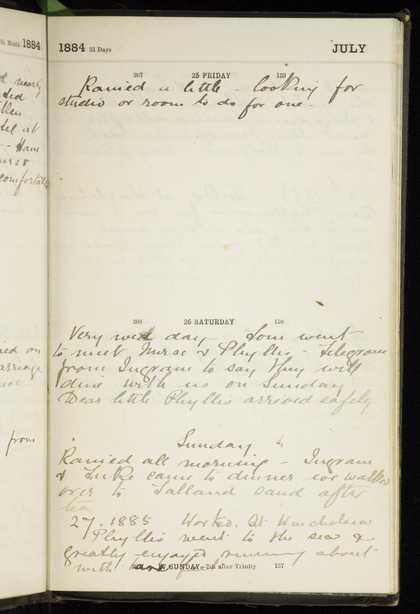 th Month 1884
1884 31 Days JULY
207 25 FRIDAY 159
Rained a little – looking for
studio or room to do for one –
208 26 SATURDAY 158
Very wet day – Tom went
to meet Nurse & Phyllis – Telegram
from Ingram to say they will
dine with us on Sunday
Dear little Phyllis arrived safely
Sunday
Rained all morning – Ingram
& Luke came to dinner we walked
over to Talland sand after
tea
27. 1885 Worked. At Winchelsea
Phyllis went to the sea &
greatly enjoyed running about
with bare
27 SUNDAY–7th after Trinity 157
nearly
at
Have
nurse
comfortable
on
carriage
from